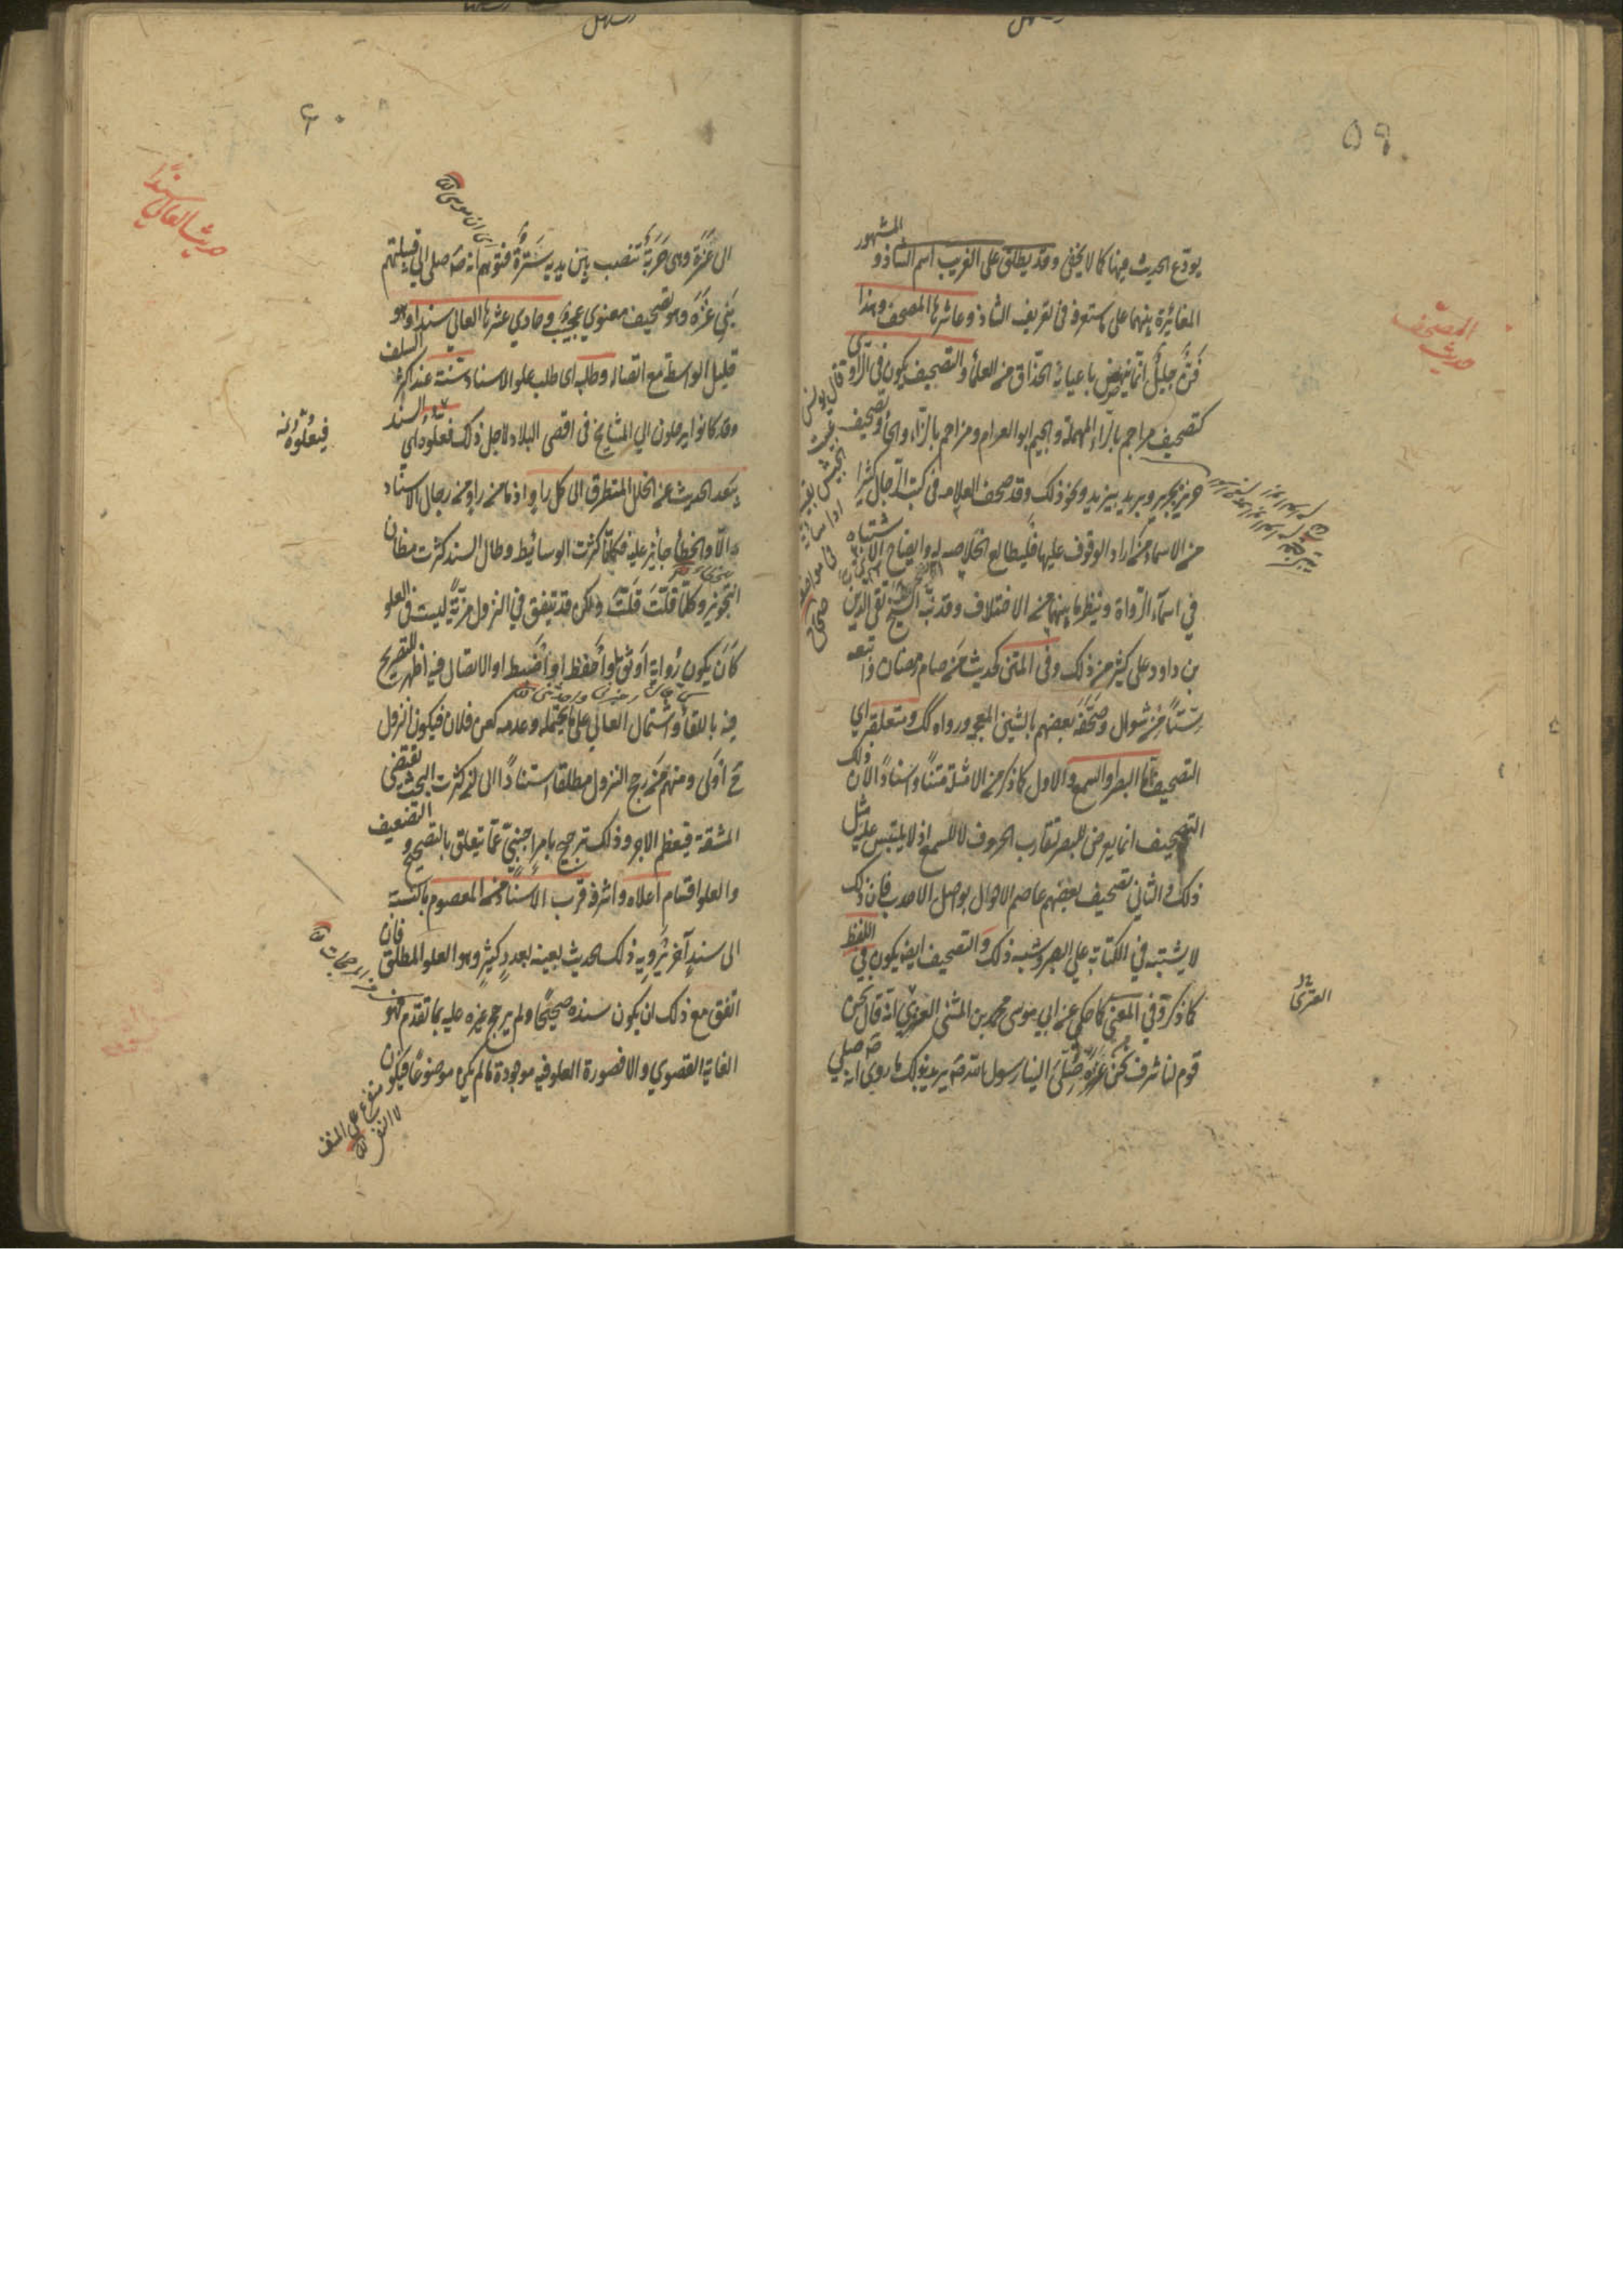 ٥٩
يودع الحديث فيها كما لا يخفى وقد يطلق على الغريب اسم الشاذ والمشهور
المغايرة بينهما على ما ستعرفه في تعريف الشاذ وعاشرها المصحف وهذا
فن جليل انما ينهض باعبائه الحذاق من العلماء والتصحيف يكون في الراوي
كتصحيف مراجم بالراء المهملة والجيم ابو العوام ومزاحم بالزاء والحاء وتصحيف
حريز بجرير وبريد بيزيد ونحو ذلك وقد صحف العلامه في كتب الرجال كثيرا
من الاسماء من اراد الوقوف عليها فليطالع الخلاصه له وايضاح الاشتباه
في اسماء الرواة وينظر ما بينهما من الاختلاف وقد نبه الشيخ تقي الدين
بن داود على كثير من ذلك وفي المتن كحديث من صام رمضان واتبعه
ستا من شوال وصحفه بعضهم بالشين المعجمه ورواه كك ومتعلقه اي
التصحيف اما البصر او السمع والاول كما ذكر من الامثلة متنا واسنادا لان ذلك
التصحيف انما يعرض للبصر لتقارب الحروف لا للسمع اذ لا يلتبس عليه مثل
ذلك والثاني تصحيف بعضهم عاصم الاحول بواصل الاحدب فان ذلك
لا يشتبه في الكتابة على البصر وشبه ذلك والتصحيف ايضا يكون في اللفظ
كما ذكر وفي المعنى كما حكي عن ابي موسى محمد بن المثنى العنزي انه قال نحن
قوم لنا شرف نحن من عنزة صلى الينا رسول الله ص يريد بذلك ما روي انه ص صلى
المصحف
حديث
العنزي
٦٠
الى عنزة وهي حربة تنصب بين يديه سترة فتوهم انه ص صلى الى قبيلتهم
بني عنزة وهو تصحيف معنوي عجيب وحادي عشرها العالي سندا وهو
قليل الواسطة مع اتصاله وطلبه اي طلب علو الاسناد سنة عند اكثر السلف
وقد كانوا يرحلون الى المشايخ في اقصى البلاد لاجل ذلك فبعلوه اي السند
يبعد الحديث عن الخلل المتطرق الى كل راو اذ ما من راو من رجال الاسناد
الا والخطأ جايز عليه فكلما كثرت الوسائط وطال السند كثرت مظان
التجويز وكلما قلت قلت ولكن قد تتفق في النزول مزية ليست في العلو
كان يكون رواته اوثق او احفظ او اضبط او الاتصال فيه اظهر للتصريح
فيه باللقاء واشتمال العالي على ما يحتمله وعدمه كعن فلان فيكون النزول
ح اولى ومنهم من رجح النزول مطلقا استنادا الى ان كثرة البحث تقتضي
المشقة فيعظم الاجر وذلك ترجيح بامر اجنبي عما يتعلق بالتصحيح والتضعيف
والعلو اقسام اعلاه واشرفه قرب الاسناد من المعصوم بالنسبة
الى سند آخر يرويه ذلك الحديث بعينه بعدد كثير وهو العلو المطلق فان
اتفق مع ذلك ان يكون سنده صحيحا ولم يرجح غيره عليه بما تقدم فهو
الغاية القصوى والا فصورة العلو فيه موجودة ما لم يكن موضوعا فيكون
حديث العالي سندا
فبعلوه